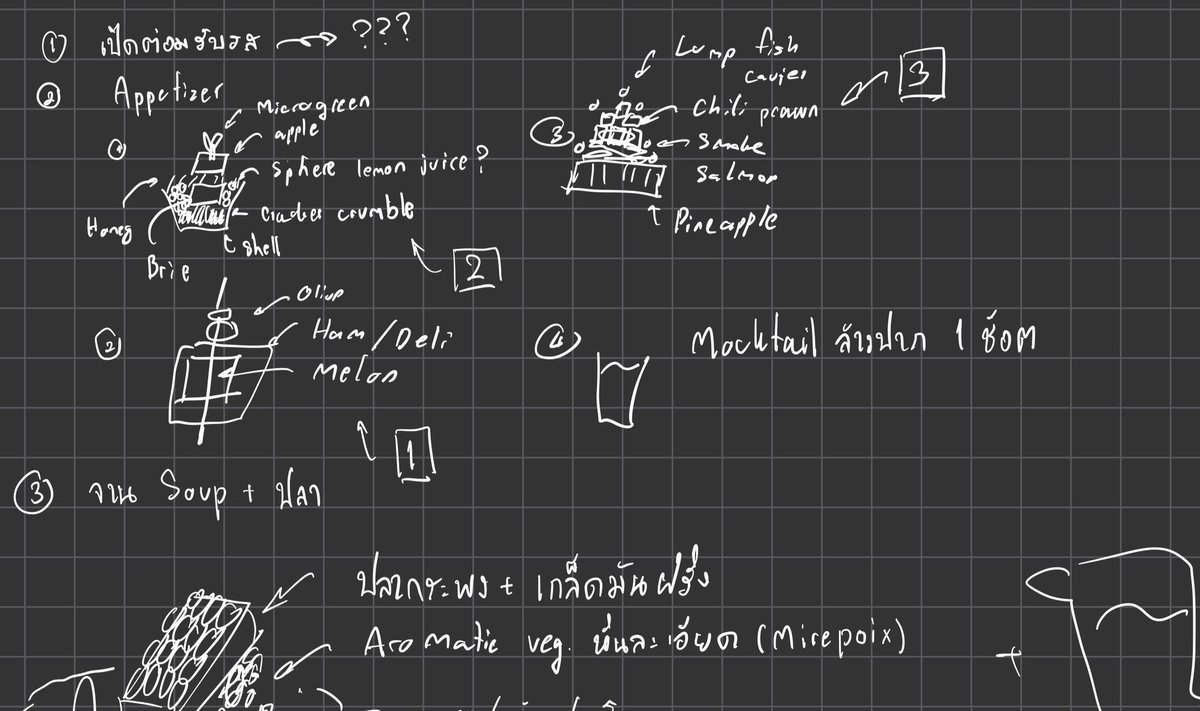 ① เปิดต่อมรับรส → ???
② Appetizer
①
Microgreen
apple
Sphere lemon juice?
Cracker crumble
Shell
Honey
Brie
2
②
Olive
Ham/Deli
Melon
1
③
Lump fish
cavier
Chili prawn
Smoke
Salmon
Pineapple
3
④ Mocktail ล้างปาก 1 ช็อต
③ จาน Soup + ปลา
ปลากระพง + เกล็ดมันฝรั่ง
Aromatic veg. หั่นละเอียด (Mirepoix)
+